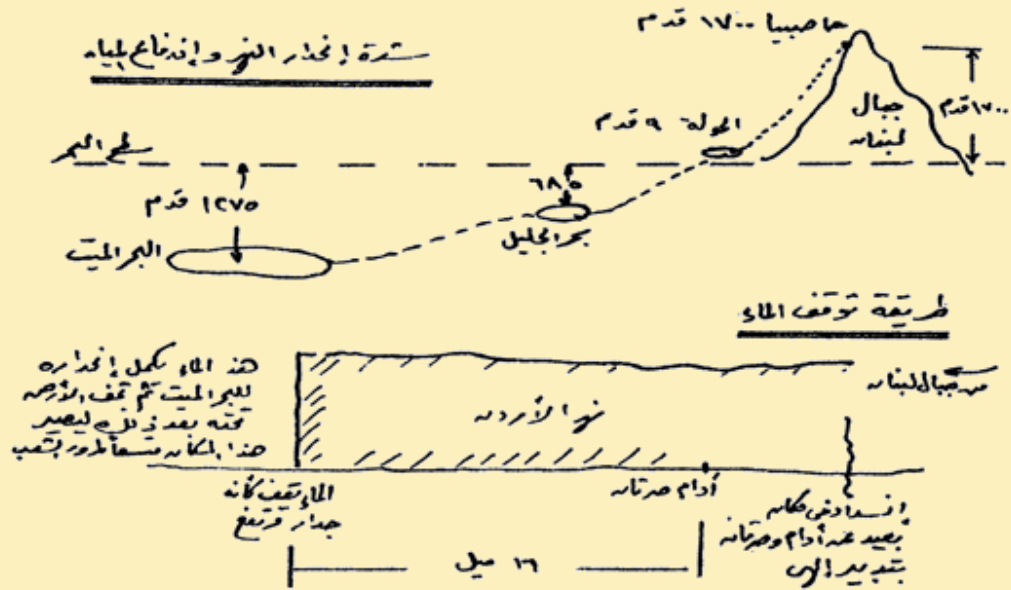 شدة إنحدار النهر وإندفاع المياه
حاصبيا ١٧٠٠ قدم
جبال
لبنان
١٧٠٠ قدم
الحولة ٩ قدم
سطح البحر
٦٨٥
١٢٧٥ قدم
بحر الجليل
البحر الميت
طريقة توقف الماء
من جبال لبنان
هذا الماء يكمل إنحداره
للبحر الميت ثم تجف الأرض
تحته بعد ذلك ليصير
هذا المكان متسعاً لمرور الشعب
نهر الأردن
الماء يقف كأنه
جدار مرتفع
أدام صرتان
إنسداد في مكان
بعيد عن أدام وصرتان
بتدبير إلهى
١٦ ميل